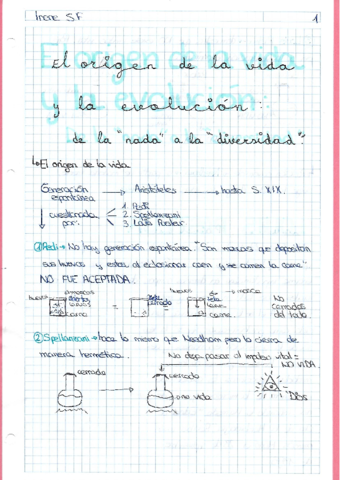 Irene S.F 1
El origen de la vida
y la evolución:
de la "nada" a la "diversidad".
El origen de la vida
Generación espontánea → Aristóteles → hasta S. XIX.
cuestionada por:
1. Redi
2. Spallanzani
3. Louis Pasteur
① Redi → No hay generación espontánea "Son moscas que depositan
sus huevos y estos al eclosionar caen y se comen la carne"
NO FUE ACEPTADA.
huevos
carne
=
cerrado
=
huevos → mosca
carne
NO
cerrados
del todo
② Spallanzani → hace lo mismo que Needham pero lo cierra de
manera hermética.
No deja pasar al impulso vital =
NO VIDA
cerrado
cerrado
no vida
DIOS